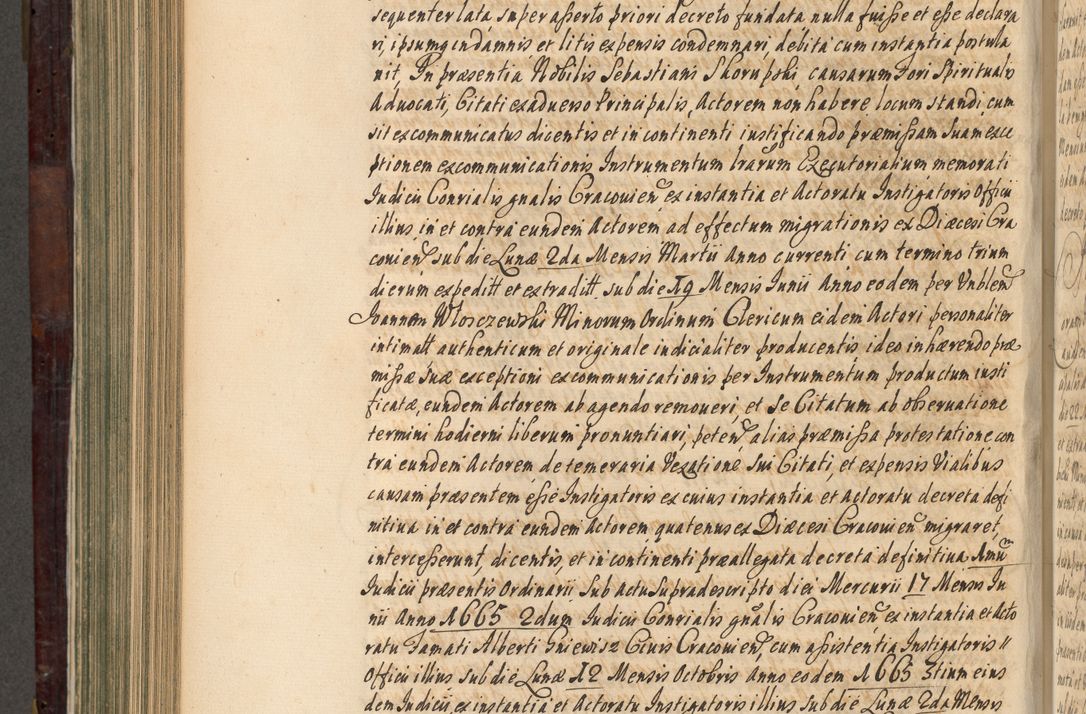 sequenter lata super asserto priori decreto fundata nulla fuisse et esse declara
ri, ipsumq in damnis et litis expensis condemnari, debita cum instantia postula
uit, In præsentia Nobilis Sebastiani Skorupski causarum Fori Spiritualis
Aduocati, Citati exaduerso Principalis, Actorem non habere locum standi, cum
sit excommunicatus dicentis et in continenti iustificando præmissam suam exce
ptionem excommunicationis Instrumentum lrarum Executorialium memorati
Iudicii Conrialis gnalis Cracouien ex instantia et Actoratu Instigatoris Officii
illius in et contra eundem Actorem ad effectum migrationis ex Diæcesi Cra
couien sub die Lunæ 2da Mensis Martii Anno currenti cum termino trium
dierum expeditt et extraditt sub die 19 Mensis Iunii Anno eodem per Vnblem
Ioannem Wlosczewski Minorum Ordinum Clericum eidem Actori personaliter
intimatt authenticum et originale indicialiter producentis ideo inhærendo præ
missæ suæ exceptioni excommunicationis per Instrumentum productum iusti
ficatæ, eundem Actorem ab agendo remoueri, et se Citatum ab obseruatione
termini hodierni liberum pronuntiari, peten alias præmissa protestatione con
tra eundem Actorem de temeraria Vexatione sui Citati, et expensis Vialibus
causam præsentem esse Instigatoris ex cuius instantia et actoratu decreta defi
nitiua in et contra eundem Actorem quatenus ex Diæcesi Cracouien migraret
intercesserunt, dicentis, et in continenti præallegata decreta definitiua 1mu
Iudicii præsentis Ordinarii sub actu supradescripto diei Mercurii 17 Mensis Iu
nii Anno 1665 2dum Iudicii Conrialis gnalis Cracouien ex instantia et Acto
ratu Famati Alberti Gniewisz Ciuis Cracouien, cum assistentia Instigatoris //
Officii illius sub die Lunæ 12 Mensis Octobris Anno eodem 1665 3tium eius
dem Iudicii ex instantia et Actoratu Instigatoris illius sub die Lunæ 2da Mensis